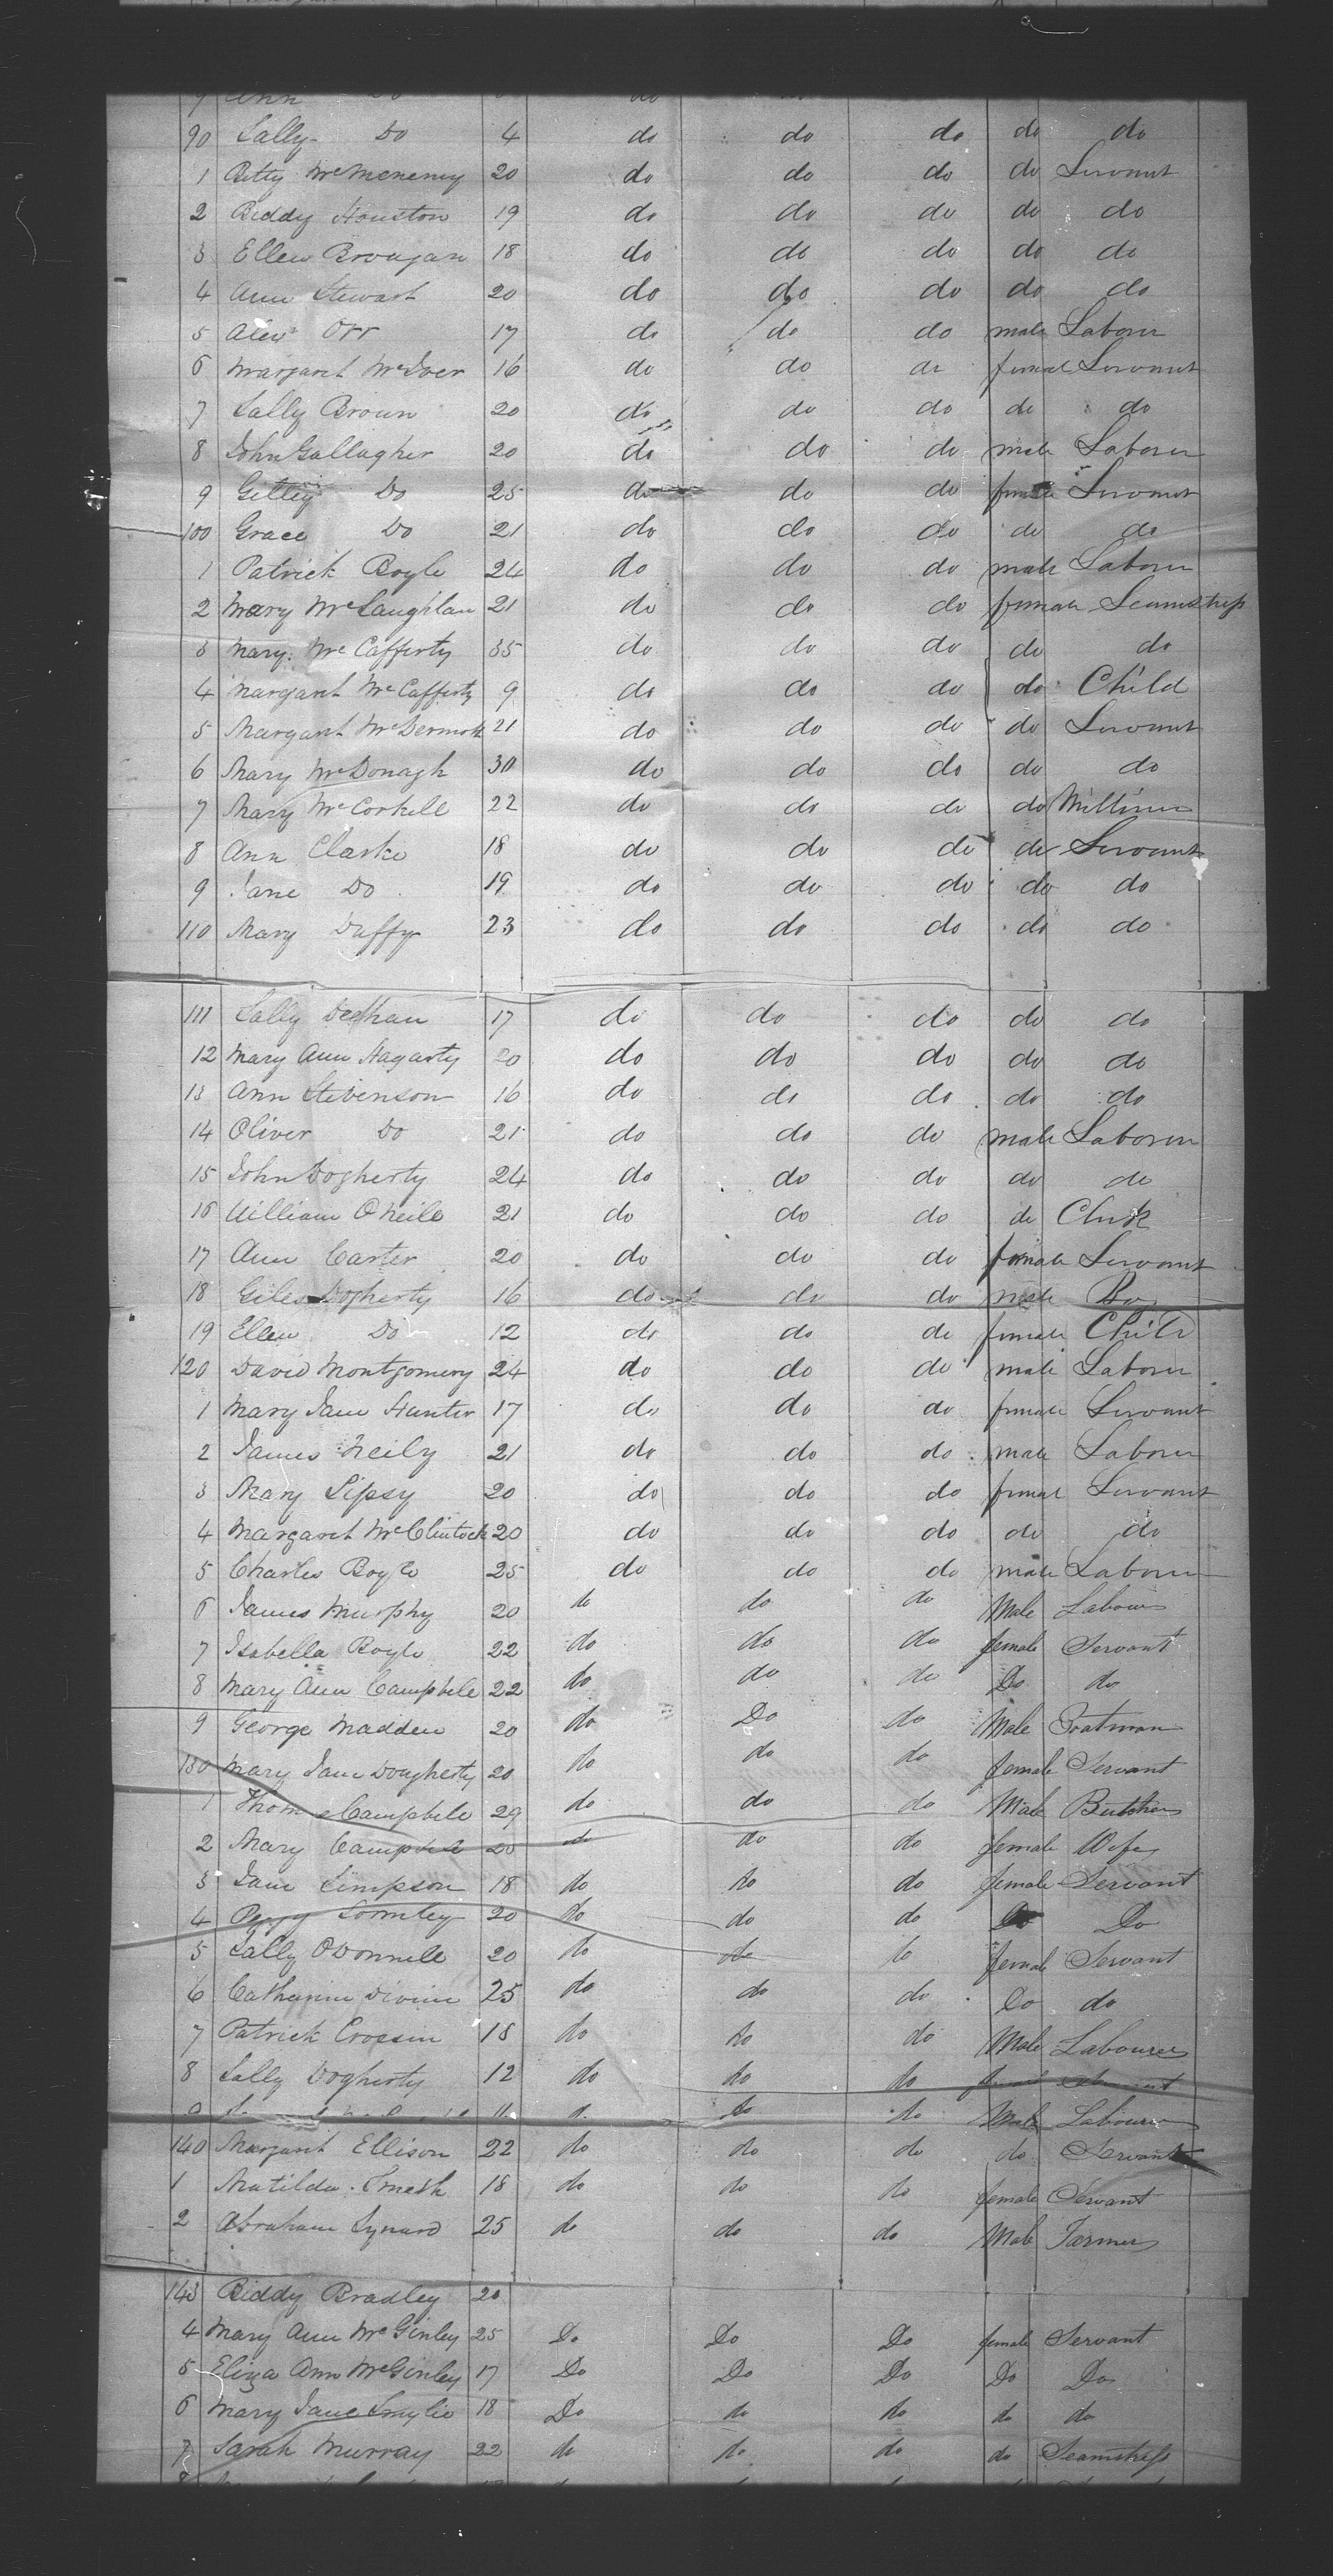 9 Ann Do do
90 Sally Do 4 do do do do do
1 Betty McMenemy 20 do do do do Servant
2 Biddy Houston 19 do do do do do
3 Ellen Brougan 18 do do do do do
4 Ann Stewart 20 do do do do do
5 Alexr Orr 17 do do do male Laborer
6 Margaret McIver 16 do do do femal Servant
7 Sally Brown 20 do do do do do
8 John Gallagher 20 do do do male Laborer
9 Getty Do 25 do do do female Servant
100 Grace Do 21 do do do do do
1 Patrick Boyle 24 do do do male Laborer
2 Mary McLaughlan 21 do do do female Seamstress
3 Mary McCafferty 35 do do do do do
4 Margaret McCafferty 9 do do do do Child
5 Margaret McDermott 21 do do do do Servant
6 Mary McDonagh 30 do do do do do
7 Mary McCorkell 22 do do do do Milliner
8 Ann Clarke 18 do do do do Servant
9 Jane Do 19 do do do do do
110 Mary Duffy 23 do do do do do
111 Sally Deehan 17 do do do do do
12 Mary Ann Hagarty 20 do do do do do
13 Ann Stevenson 16 do do do do do
14 Oliver Do 21 do do do male Laborer
15 John Dogherty 24 do do do do do
16 William O'Neile 21 do do do do Clerk
17 Ann Carter 20 do do do female Servant
18 Giles Dogherty 16 do do do male Boy
19 Ellen Do 12 do do do female Child
120 David Montgomery 24 do do do male Laborer
1 Mary Jane Hunter 17 do do do female Servant
2 James Neily 21 do do do male Laborer
3 Mary Lipsy 20 do do do femal Servant
4 Margaret McClintock 20 do do do do do
5 Charles Boyle 25 do do do male Laborer
6 James Murphy 20 do do do Male Labourer
7 Isabella Boyle 22 do do do female Servant
8 Mary Ann Campbele 22 do do do Do do
9 George Madden 20 do Do do Male Boatman
130 Mary Jane Dougherty 20 do do do female Servant
1 Thoms Campbele 29 do do do Male Butcher
2 Mary Campbele 20 do do do female Wife
3 Jane Simpson 18 do do do female Servant
4 Peggy Gormley 20 do do do Do Do
5 Sally ODonnell 20 do do do female Servant
6 Catharine Divine 25 do do do Do do
7 Patrick Crossin 18 do do do Male Labourer
8 Sally Dogherty 12 do do do
9 11 do do do Male Labourer
140 Margaret Ellison 22 do do do do Servant
1 Matilda Smith 18 do do do female Servant
2 Abraham Lynard 25 do do do Male Farmer
143 Biddy Bradley 20
4 Mary Ann McGinley 25 Do Do Do female Servant
5 Eliza Ann McGinley 17 Do Do Do Do Do
6 Mary Jane Smylie 18 Do do do do do
7 Sarah Murray 22 do do do do Seamstress